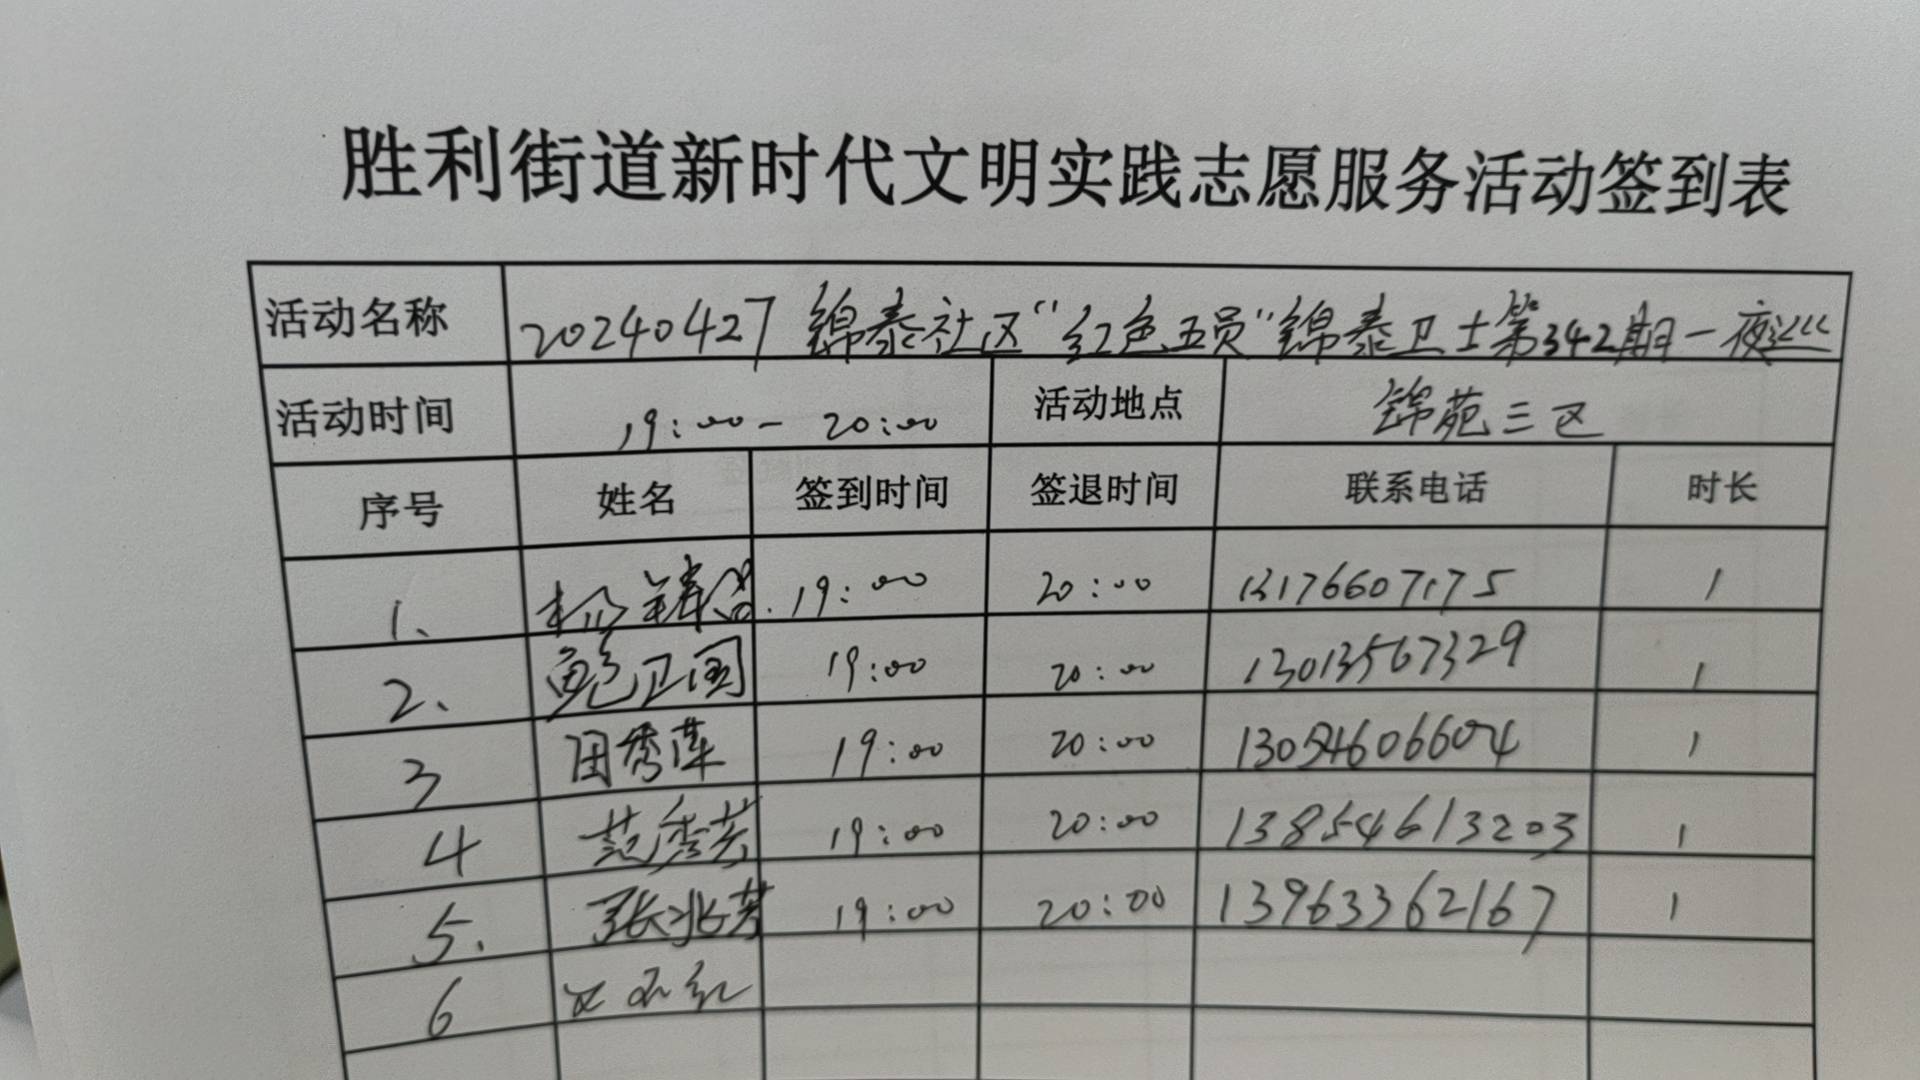 胜利街道新时代文明实践志愿服务活动签到表
活动名称 20240427 锦泰社区“红色五员”锦泰卫士第342期一夜巡
活动时间 19:00-20:00 活动地点 锦苑三区
序号 姓名 签到时间 签退时间 联系电话 时长
1、 19:00 20:00 13176607175 1
2、 鲍卫国 19:00 20:00 13013567329 1
3 田秀萍 19:00 20:00 13054606604 1
4 范秀芳 19:00 20:00 13854613203 1
5. 张兆芳 19:00 20:00 13963362167 1
6